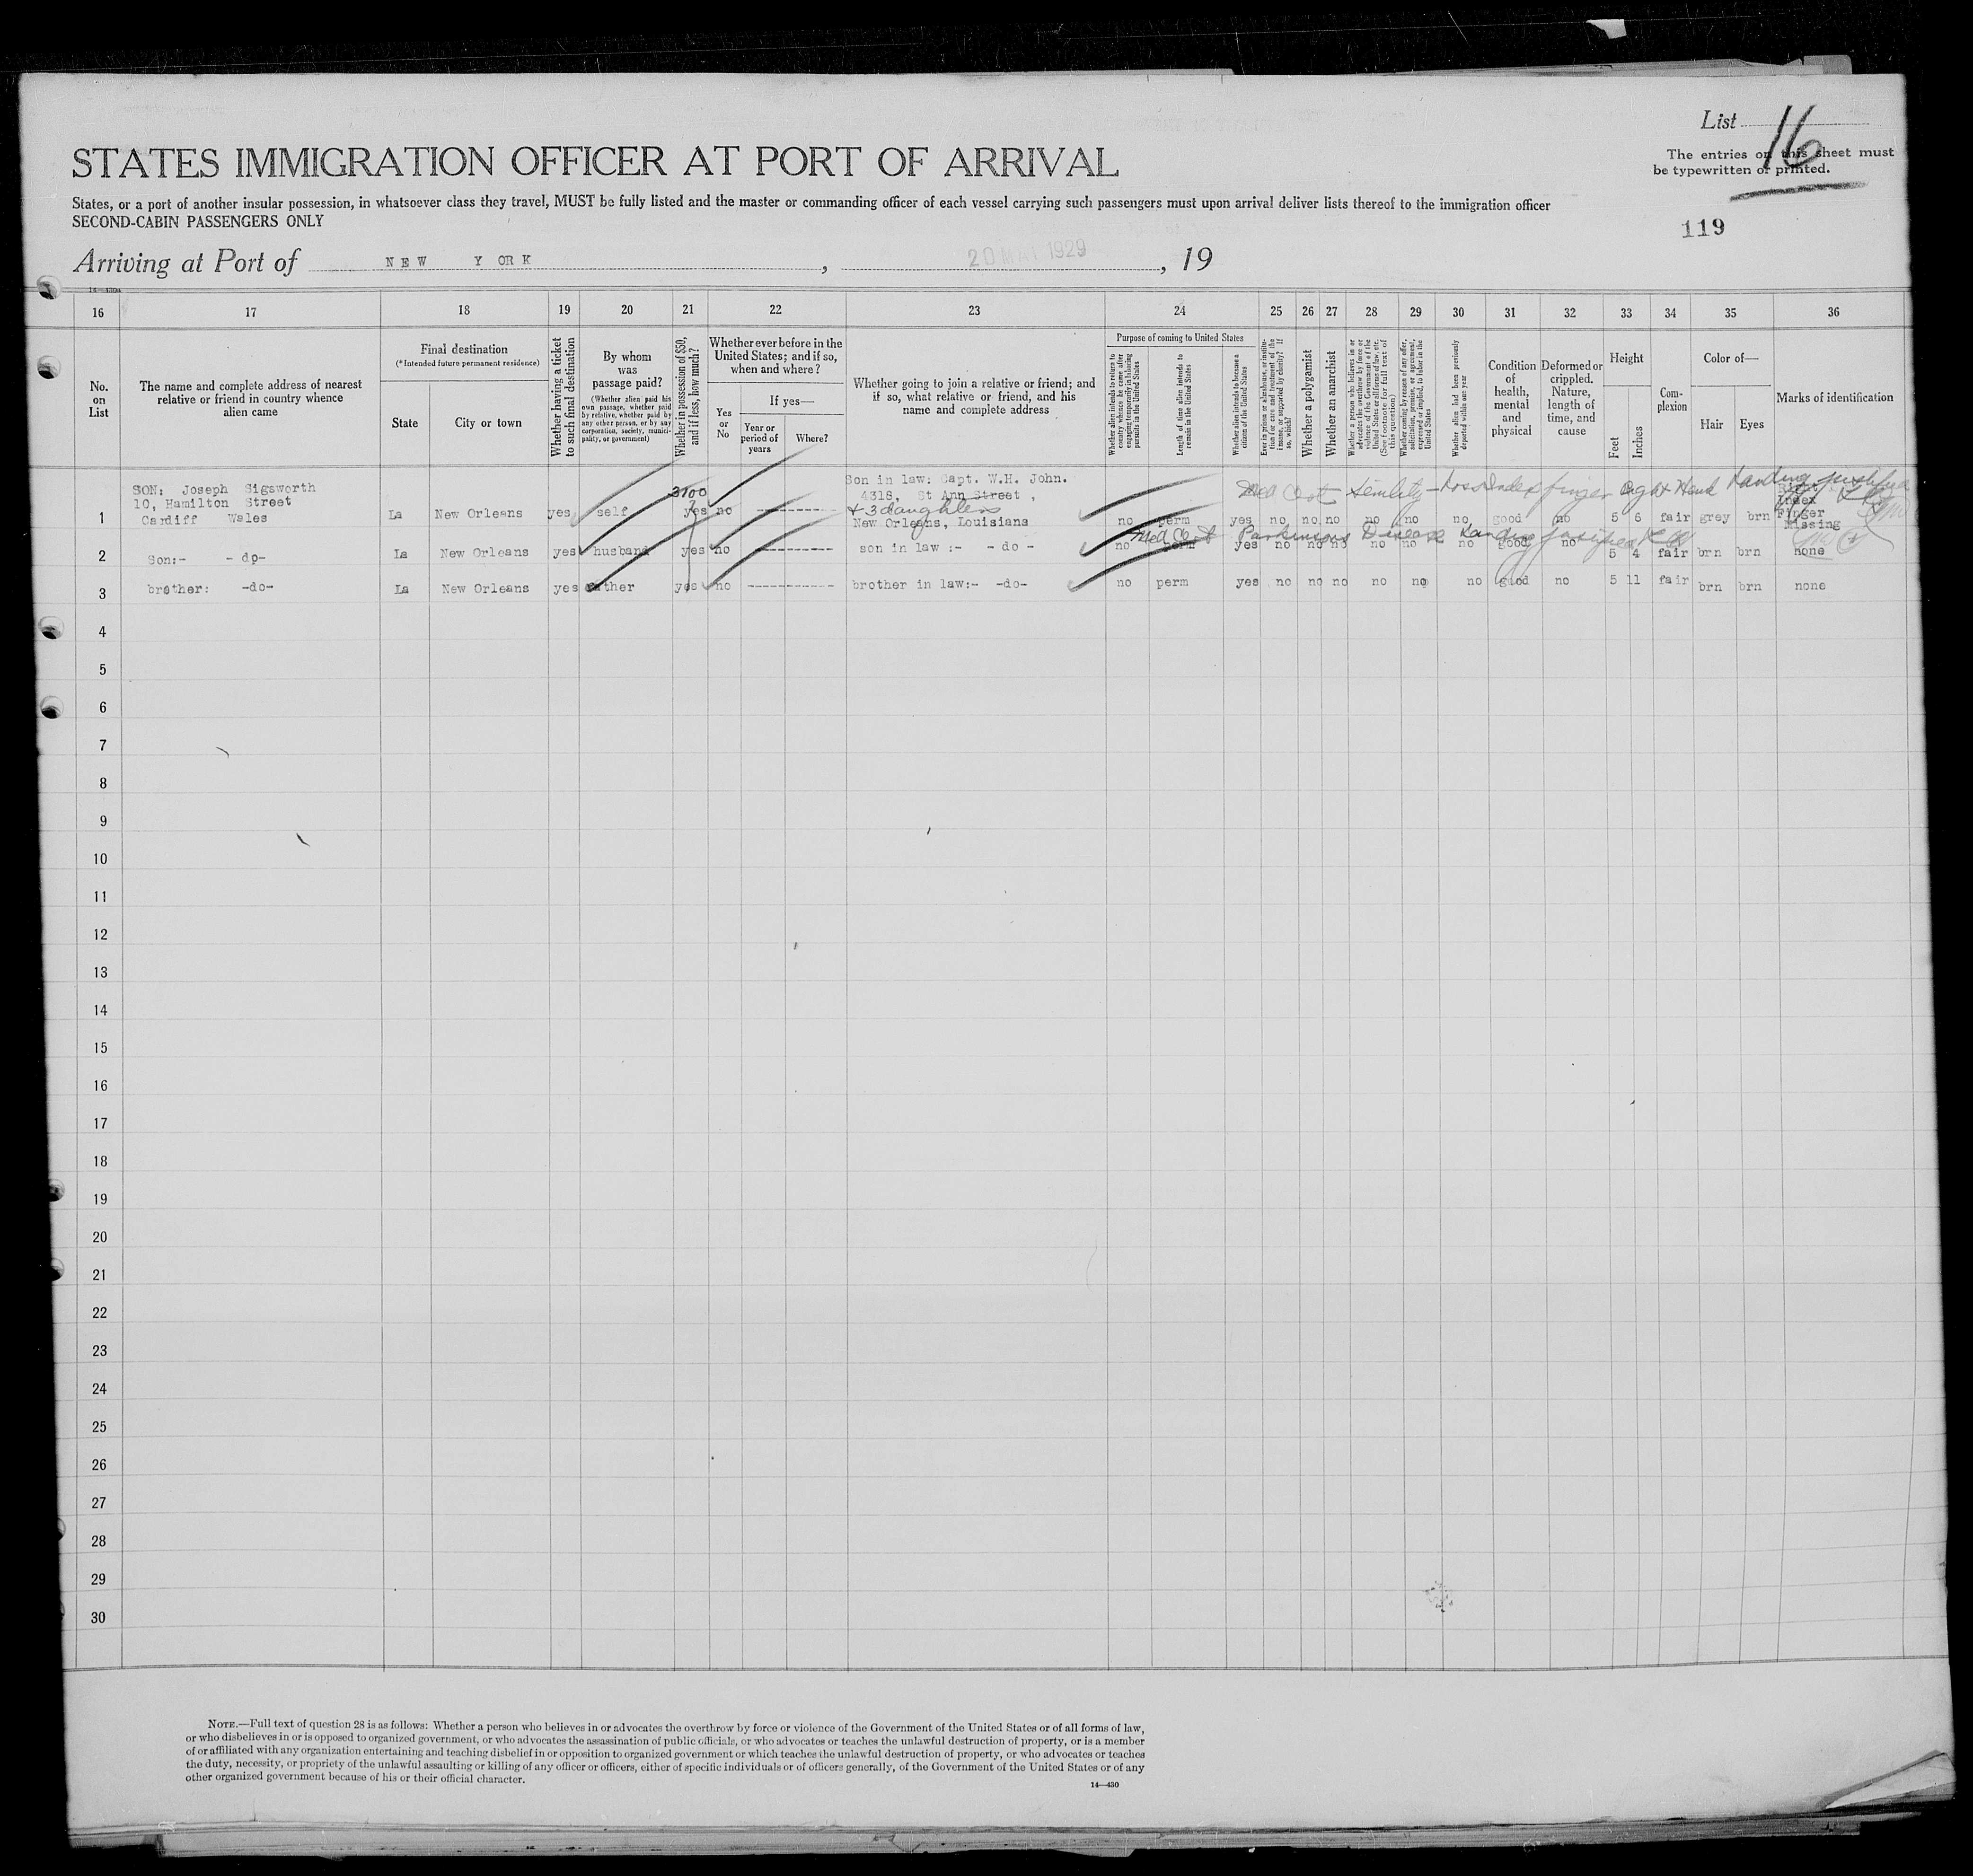 List 16
The entries on this sheet must
be typewritten or printed.
STATES IMMIGRATION OFFICER AT PORT OF ARRIVAL
States, or a port of another insular possession, in whatsoever class they travel, MUST be fully listed and the master or commanding officer of each vessel carrying such passengers must upon arrival deliver lists thereof to the immigration officer
SECOND-CABIN PASSENGERS ONLY
119
Arriving at Port of NEW YORK, 20 MAY 1929, 19
16 17 18 19 20 21 22 23 24 25 26 27 28 29 30 31 32 33 34 35 36
No. on List
The name and complete address of nearest
relative or friend in country whence
alien came
Final destination
(*Intended future permanent residence)
State
City or town
Whether having a ticket
to such final destination
By whom
was
passage paid?
(Whether alien paid his
own passage, whether paid
by relative, whether paid by
any other person, or by any
corporation, society, munici-
pality, or government)
Whether in possession of $50,
and if less, how much?
Whether ever before in the
United States; and if so,
when and where?
Yes
or
No
If yes—
Year or
period of
years
Where?
Whether going to join a relative or friend; and
if so, what relative or friend, and his
name and complete address
Purpose of coming to United States
Whether alien intends to return to
country whence he came after
engaging temporarily in laboring
pursuits in the United States
Length of time alien intends to
remain in the United States
Whether alien intends to become a
citizen of the United States
Ever in prison or almshouse, or institu-
tion for care and treatment of the
insane, or supported by charity? If
so, which?
Whether a polygamist
Whether an anarchist
Whether a person who believes in or
advocates the overthrow by force or
violence of the Government of the
United States or all forms of law, etc.
(See footnote for full text of
this question)
Whether coming by reason of any offer,
solicitation, promise, or agreement,
expressed or implied, to labor in the
United States
Whether alien had been previously
deported within one year
Condition
of
health,
mental
and
physical
Deformed or
crippled.
Nature,
length of
time, and
cause
Height
Feet
Inches
Com-
plexion
Color of—
Hair
Eyes
Marks of identification
SON: Joseph Sigsworth
10, Hamilton Street
Cardiff Wales
1 La New Orleans yes self 3100 yes no ----------
Son in law: Capt. W.H. John.
4318, St Ann Street,
+ 3 daughters
New Orleans, Louisiana
Med Cert Senility - Loss Index finger Right Hand Landing
no perm yes no no no no no no good no 5 6 fair grey brn
Right
Index
Finger
Missing
2 Son:- - do- La New Orleans yes husband yes no ---------- son in law :- - do -
Med Cert Parkinsons Disease Landing justified
no perm yes no no no no no no good no 5 4 fair brn brn none
3 brother: -do- La New Orleans yes father yes no ---------- brother in law:- -do- no perm yes no no no no no no good no 5 11 fair brn brn none
4
5
6
7
8
9
10
11
12
13
14
15
16
17
18
19
20
21
22
23
24
25
26
27
28
29
30
NOTE.—Full text of question 28 is as follows: Whether a person who believes in or advocates the overthrow by force or violence of the Government of the United States or of all forms of law,
or who disbelieves in or is opposed to organized government, or who advocates the assassination of public officials, or who advocates or teaches the unlawful destruction of property, or is a member
of or affiliated with any organization entertaining and teaching disbelief in or opposition to organized government or which teaches the unlawful destruction of property, or who advocates or teaches
the duty, necessity, or propriety of the unlawful assaulting or killing of any officer or officers, either of specific individuals or of officers generally, of the Government of the United States or of any
other organized government because of his or their official character.
14—430